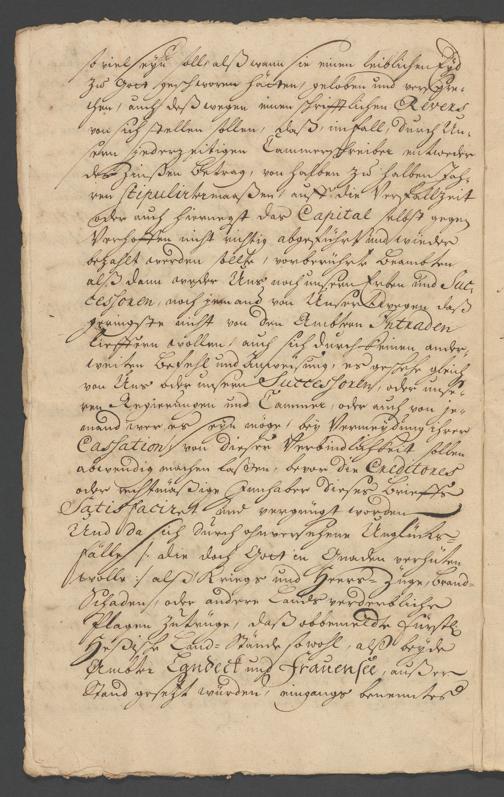 so viel seyn soll, alß wann sie einen leiblichen Eyd
zu Gott geschworen hätten, geloben und verspre-
chen, auch deßwegen einen schrifftlichen Revers
von sich stellen sollen, daß, imfall, durch Un-
sern jederzeitigen Cammerschreiber entweder
des Zinßen Betrag, von halben zu halben Jah-
ren stipulirtermaaßen, auf die Verfallzeit
oder auch hiernegst das Capital selbst gegen
Verhoffen nicht richtig abgeführt und wieder
bezahlt werden solte, vorberührte Beambten
alß dann weder Uns noch unsern Erben und Suc-
cessoren, noch jemand von Unsertwegen daß
geringste nicht von den Ambtern Intraden
lieffern wollen, auch sich durch keinen ander-
weiten Befehl und Anweisung, es geschehe gleich
von Uns oder unsern Successoren, oder unse-
ren Regierungen und Cammer, oder auch von je-
mand wer es seyn möge, bey Vermeydung ihrer
Cassation, von dieser Verbindlichkeit sollen
abwendig machen laßen, bevor die Creditores
oder rechtmäßige Innhaber dieser Brieffs
Satisfaciret und vergnügt worden
Und da sich durch ohnversehene Unglücks-
fälle /: die doch Gott in Gnaden verhüten
wolle :/ alß Kriegs und Heers-Züge, brand-
Schäden, oder andere Lands verderbliche
Plagen zutrüge, daß obbemelde Fürstl.
Heßische Land-Stände sowohl, alß beyde
Ambter Landeck und Frauensee, außer
Stand gesetzt würden, eingangs benenntes